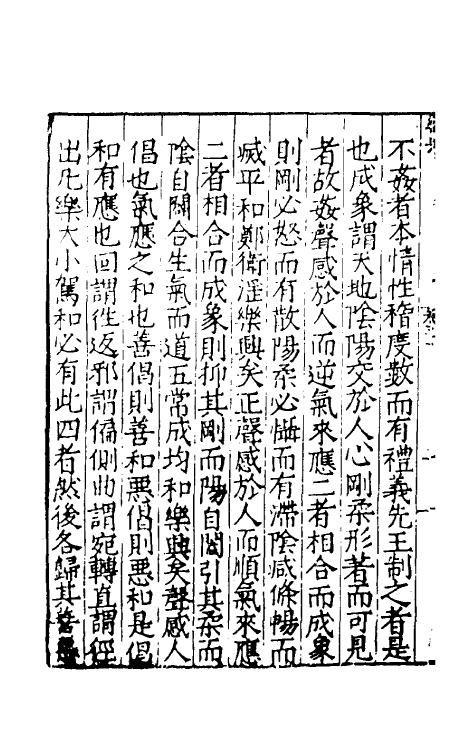 不姦者本情性稽度數而有禮義先王制之者是
也成象謂天地陰陽交於人心剛柔形著而可見
者故姦聲感於人而逆氣來應二者相合而成象
則剛必怒而有散陽柔必懾而有滯陰咸條暢而
臧平和鄭衛淫樂興矣正聲感於人而順氣來應
二者相合而成象則抑其剛而陽自闔引其柔而
陰自闢合生氣而道五常成均和樂興矣聲感人
倡也氣應之和也善倡則善和惡倡則惡和是倡
和有應也回謂徃返邪謂偏側曲謂宛轉直謂徑
出凡樂大小駕和必有此四者然後各歸其善惡